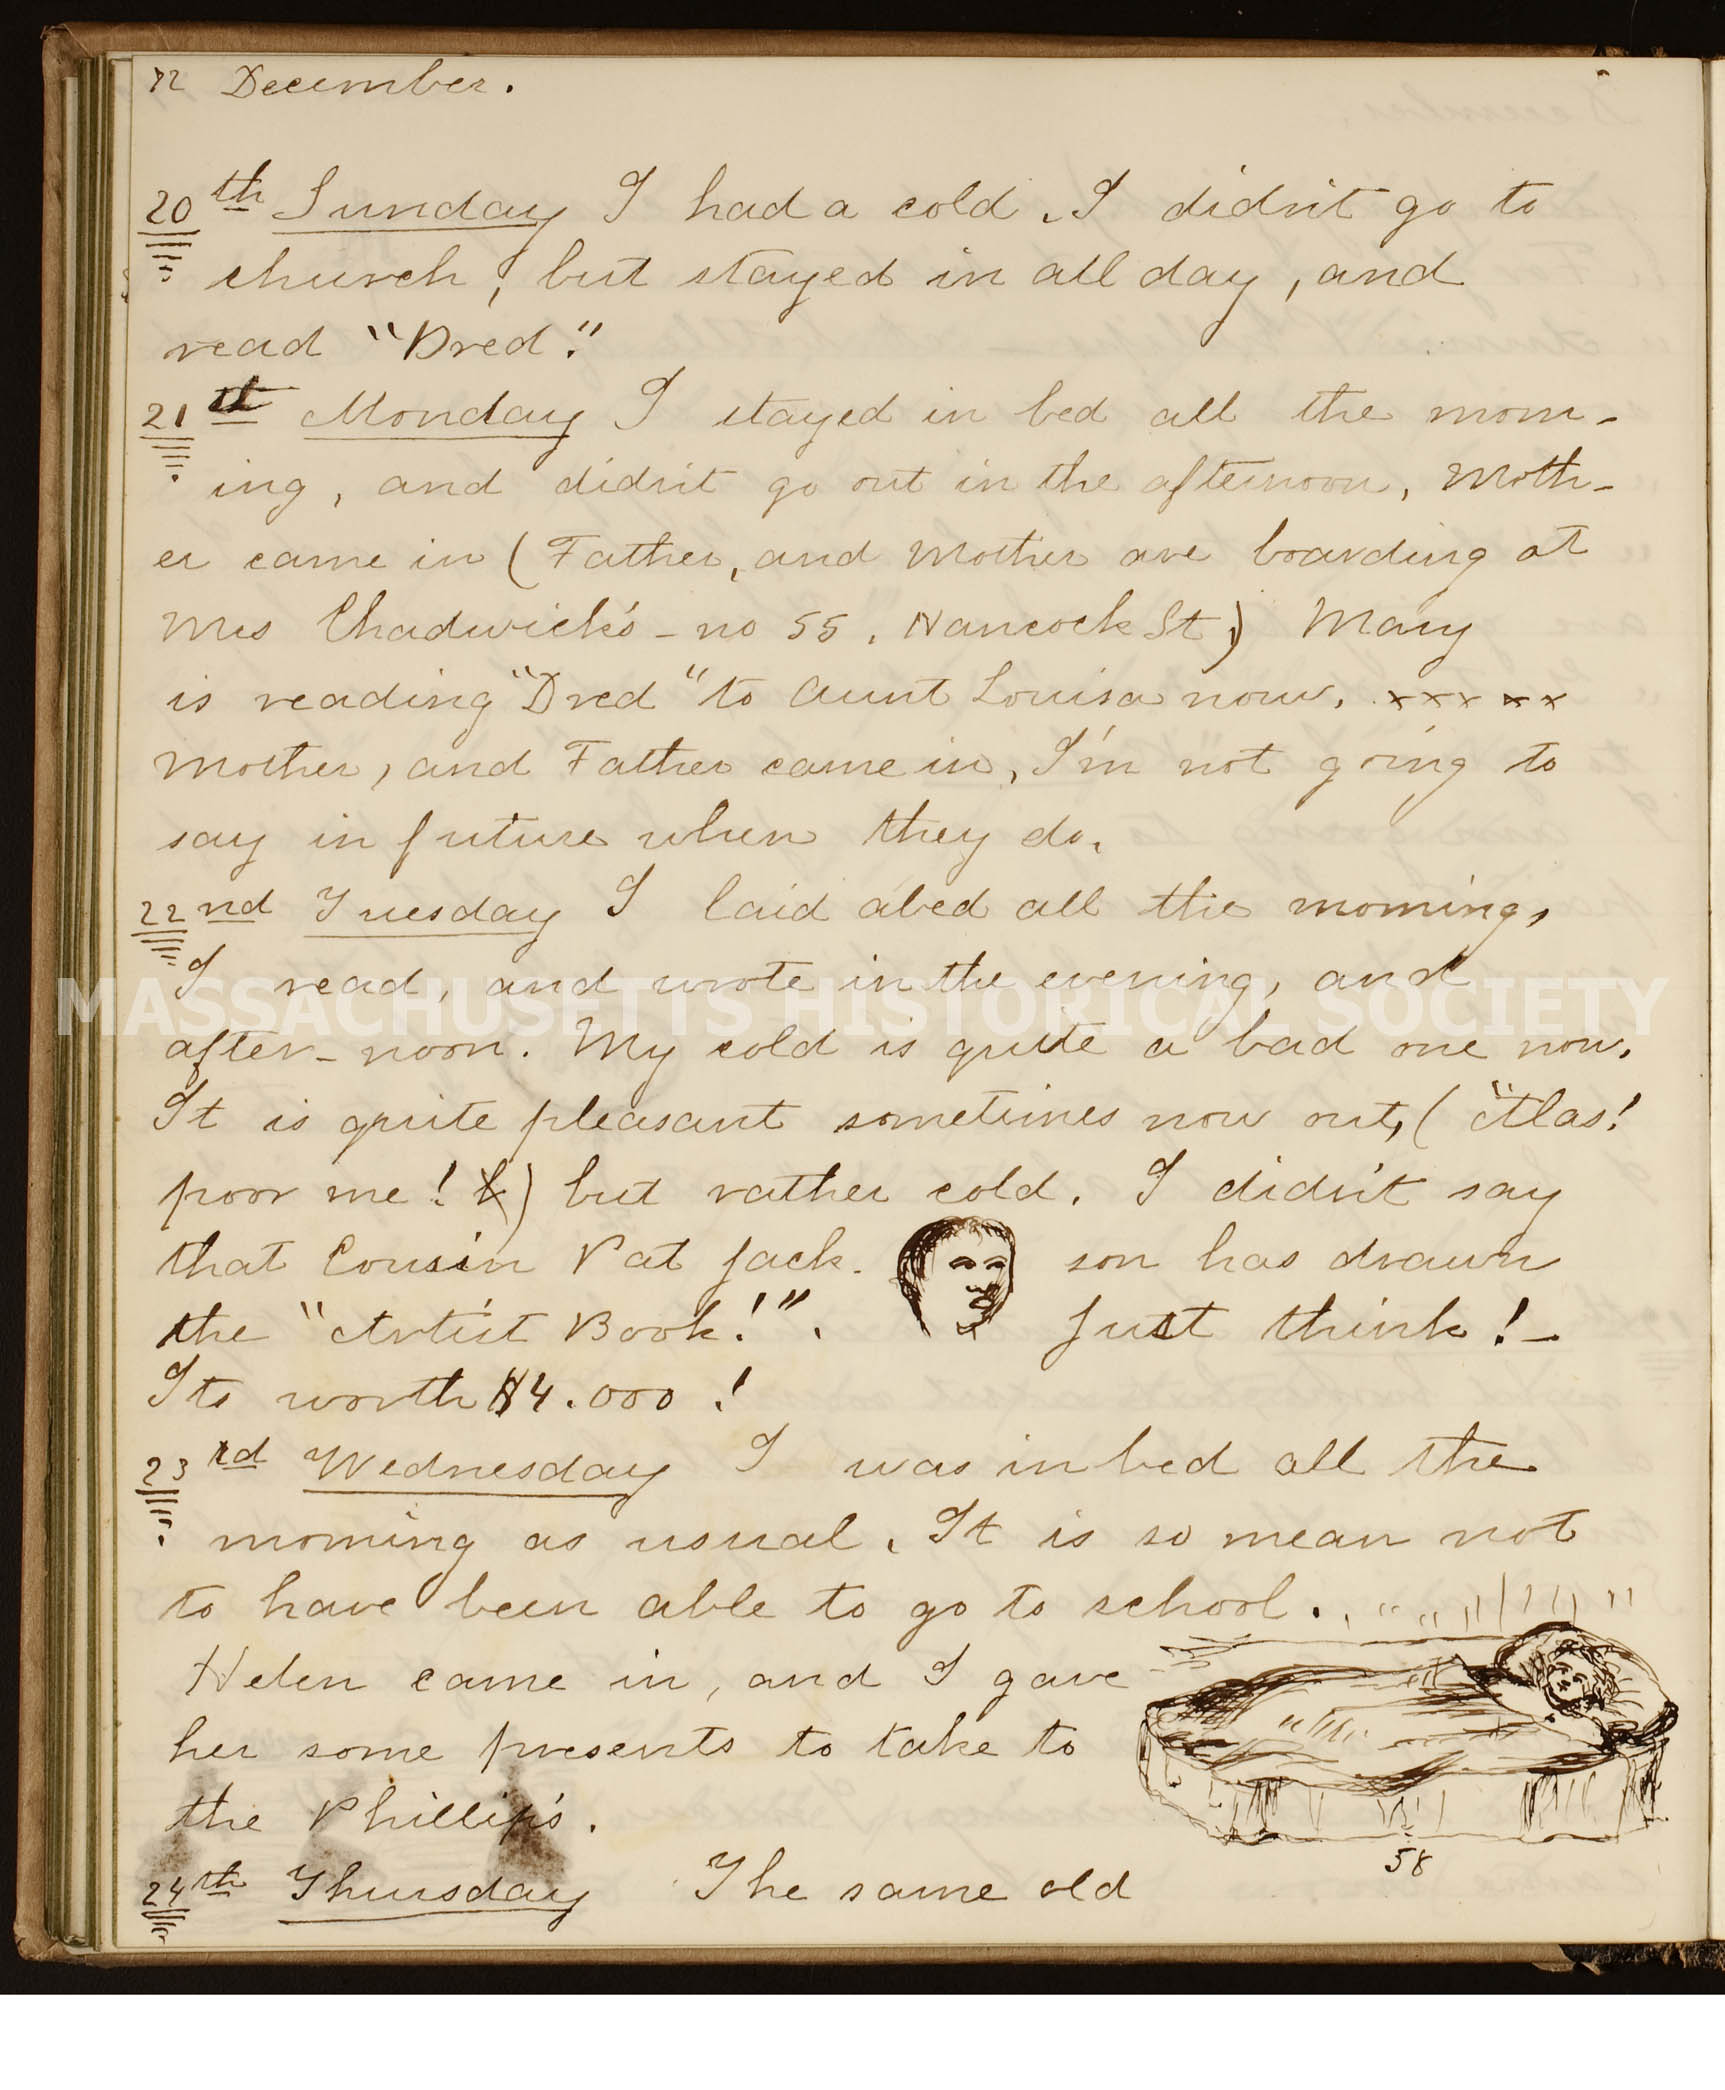 72 December.
20th Sunday I had a cold. I did'nt go to
church, but stayed in all day, and
read "Dred."
21st Monday I stayed in bed all the morn-
ing, and did'nt go out in the afternoon, Moth-
er came in (Father, and Mother are boarding at
Mrs Chadwick's - no 55. Hancock St) Mary
is reading "Dred" to Aunt Louisa now. xxx xx
Mother, and Father came in, I'm not going to
say in future when they do.
22nd Tuesday I laid abed all the morning,
I read, and wrote in the evening, and
MASSACHUSETTS HISTORICAL SOCIETY
after-noon. My cold is quite a bad one now.
It is quite pleasant sometimes now out, ("Alas!
poor me!) but rather cold. I did'nt say
that Cousin Pat Jack- son has drawn
the "Artist Book!". Just think! -
Its worth $4.000!
23rd Wednesday I was in bed all the
morning as usual. It is so mean not
to have been able to go to school.
Helen came in, and I gave
her some presents to take to
the Phillip's.
58
24th Thursday The same old